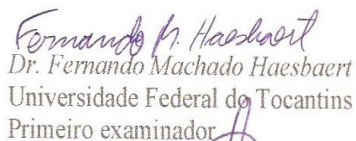 Fernando M. Haesbaert
Dr. Fernando Machado Haesbaert
Universidade Federal do Tocantins
Primeiro examinador